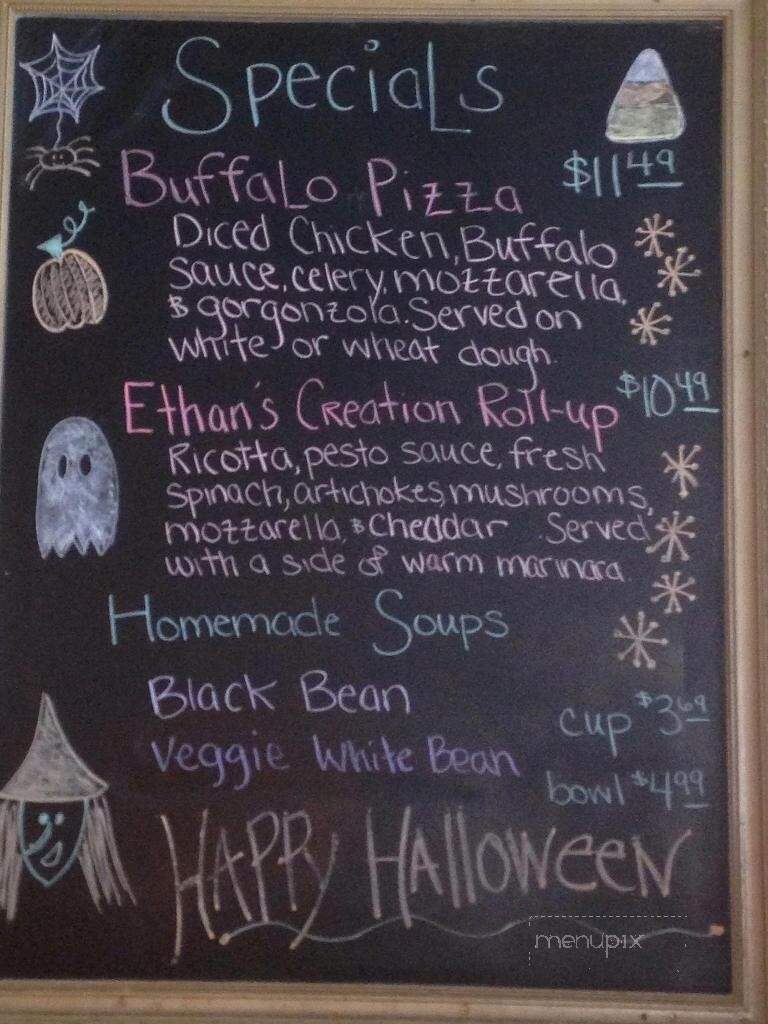 Specials
Buffalo Pizza $11.49
Diced Chicken, Buffalo
sauce, celery, mozzarella,
& gorgonzola. Served on
white or wheat dough.
Ethan's Creation Roll-up $10.49
Ricotta, pesto sauce, fresh
spinach, artichokes, mushrooms,
mozzarella, & cheddar. Served
with a side of warm marinara.
Homemade Soups
Black Bean
cup $3.69
Veggie White Bean
bowl $4.99
Happy Halloween
menupix